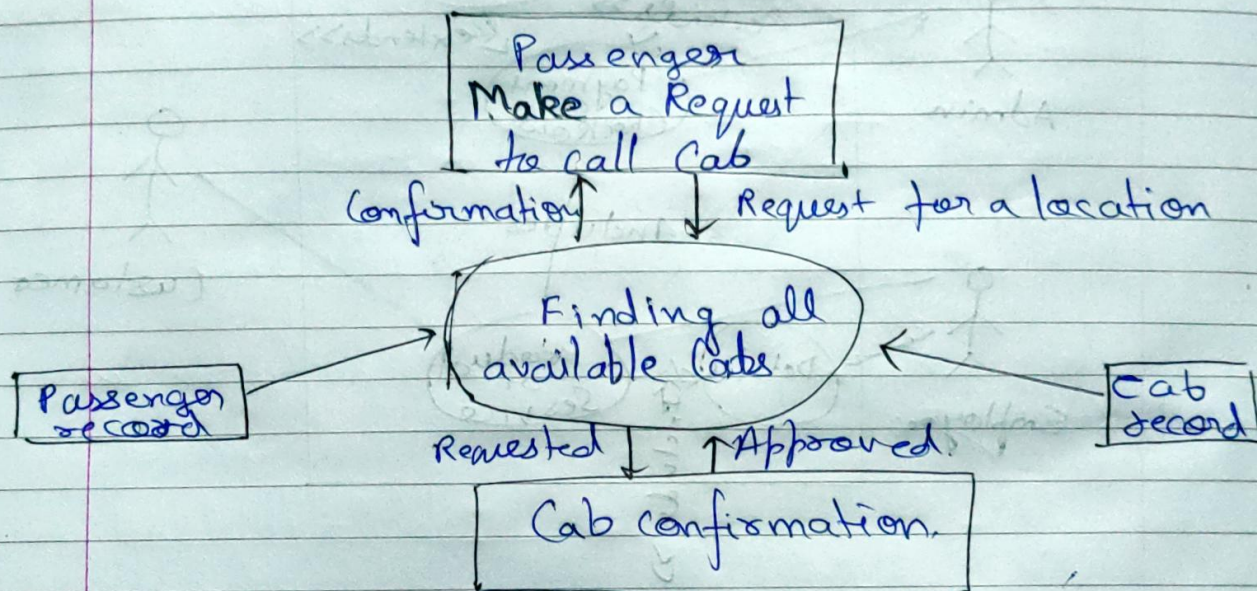 Passenger
Make a Request
to call Cab
Confirmation
Request for a location
Finding all
available Cabs
Passenger
record
Cab
record
Requested
Approved.
Cab confirmation.